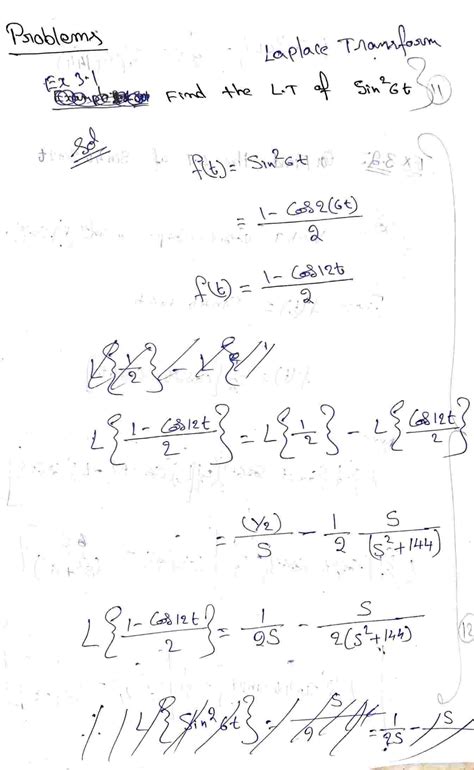 Problems
Laplace Transform
Ex 3.1 Find the L.T of Sin²6t
11
Sol
f(t) = Sin²6t
= 1 - Cos2(6t) / 2
f(t) = 1 - Cos12t / 2
L{1/2} - L{
L{1 - Cos12t / 2} = L{1/2} - L{Cos12t / 2}
= (1/2) / S - 1/2 S / (S²+144)
L{1 - Cos12t / 2} = 1 / 2S - S / 2(S²+144)
12
L{Sin²6t} = S / 2 = 1 / 2S - S